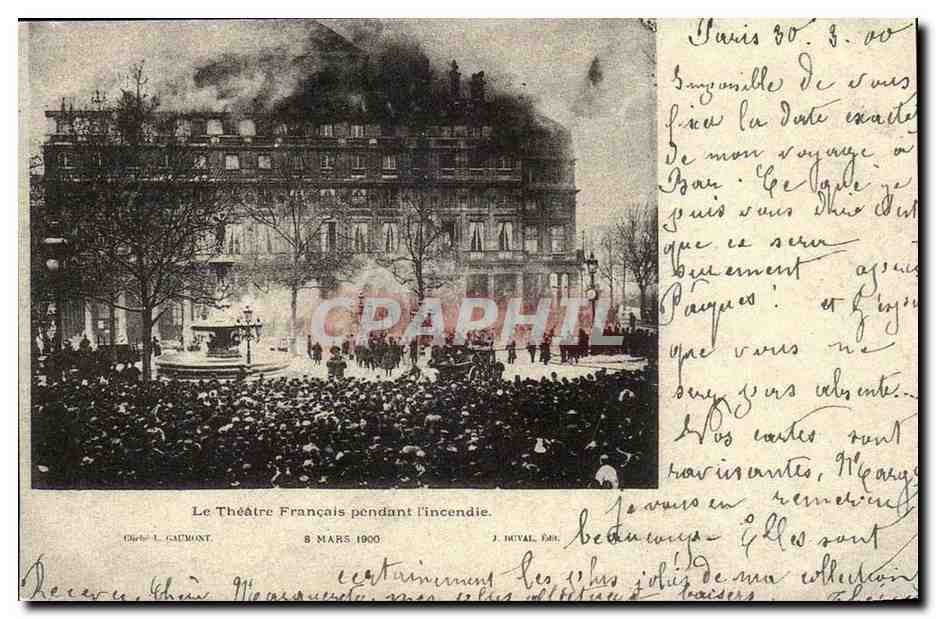 Paris 30. 3. 00
Impossible de vous
fixer la date exacte
de mon voyage à
Bar. Ce que je
puis vous dire c'est
que ce sera
seulement après
Pâques! et j'espère
que vous ne
serez pas absente.
Vos cartes sont
ravissantes, Marg
je vous en remercie
beaucoup. Elles sont
certainement les plus jolies de ma collection
Recevez, chère Marguerite, mes plus affectueux baisers.
CPARAMA CPARPHIL
Le Théâtre Français pendant l'incendie.
Cliché L. GAUMONT. 8 MARS 1900 J. DUVAL, Édit.